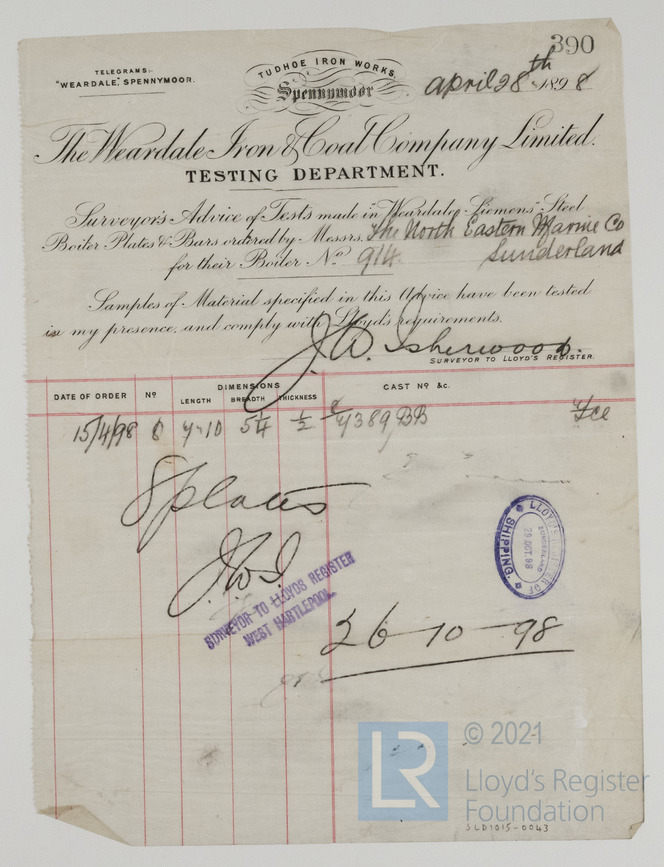 390
TELEGRAMS:-
"WEARDALE," SPENNYMOOR.
TUDHOE IRON WORKS,
Spennymoor
April 28th 1898
The Weardale Iron & Coal Company Limited.
TESTING DEPARTMENT.
Surveyor's Advice of Tests made in "Weardale-Siemens" Steel
Boiler Plates & Bars ordered by Messrs. The North Eastern Marine Co
for their Boiler No 914. Sunderland
Samples of Material specified in this Advice have been tested
in my presence, and comply with Lloyd's requirements.
J. W. Isherwood.
SURVEYOR TO LLOYD'S REGISTER.
DATE OF ORDER No DIMENSIONS CAST No &c.
LENGTH BREADTH THICKNESS
15/4/98 6 7-10 5¼ ½ 7389 BB
8 plates
J.W.I
SURVEYOR TO LLOYDS REGISTER
WEST HARTLEPOOL
LLOYD'S REGISTER OF SHIPPING
SUNDERLAND
29 OCT. 98
26-10-98
LR
© 2021
Lloyd's Register
Foundation
SLD1015-0043